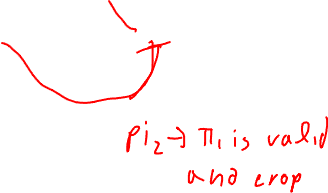 pi₂→ π₁ is valid
and crop